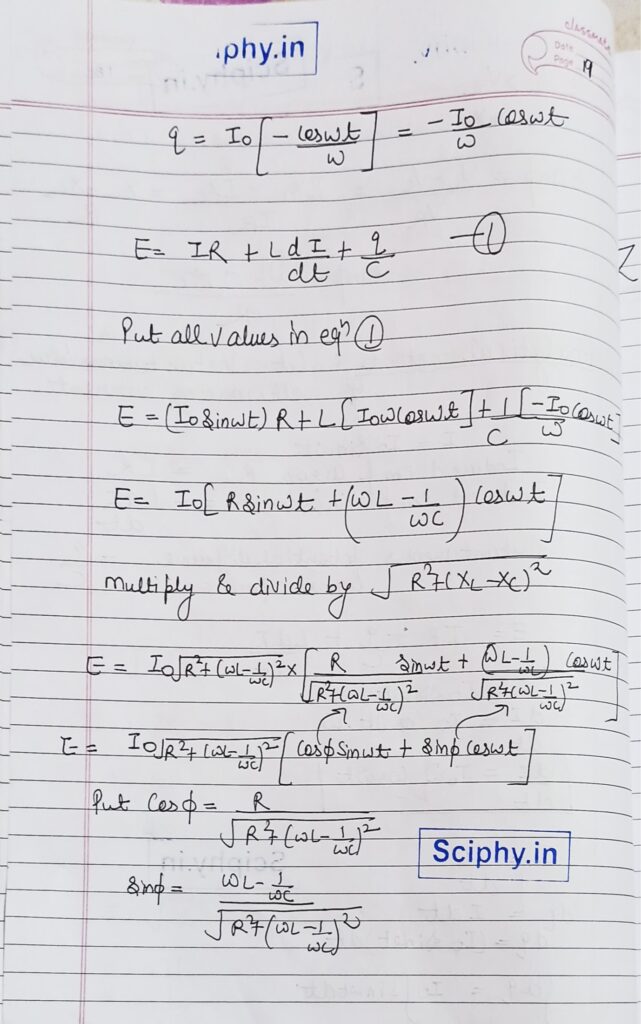 classmate
Date
Page 19
.phy.in
q = I₀[-coswt/ω] = -I₀/ω coswt
E = IR + L dI/dt + q/C —①
Put all values in eqⁿ ①
E = (I₀ sinwt) R + L [I₀ω coswt] + 1/C [-I₀/ω coswt]
E = I₀[R sinwt + (ωL - 1/ωC) coswt]
Multiply & divide by √(R²+(XL-XC)²)
E = I₀√(R²+(ωL-1/ωC)²) × [R/√(R²+(ωL-1/ωC)²) sinwt + (ωL-1/ωC)/√(R²+(ωL-1/ωC)²) coswt]
E = I₀√(R²+(ωL-1/ωC)²) [cosφ sinwt + sinφ coswt]
Put cosφ = R/√(R²+(ωL-1/ωC)²)
Sciphy.in
sinφ = ωL-1/ωC/√(R²+(ωL-1/ωC)²)